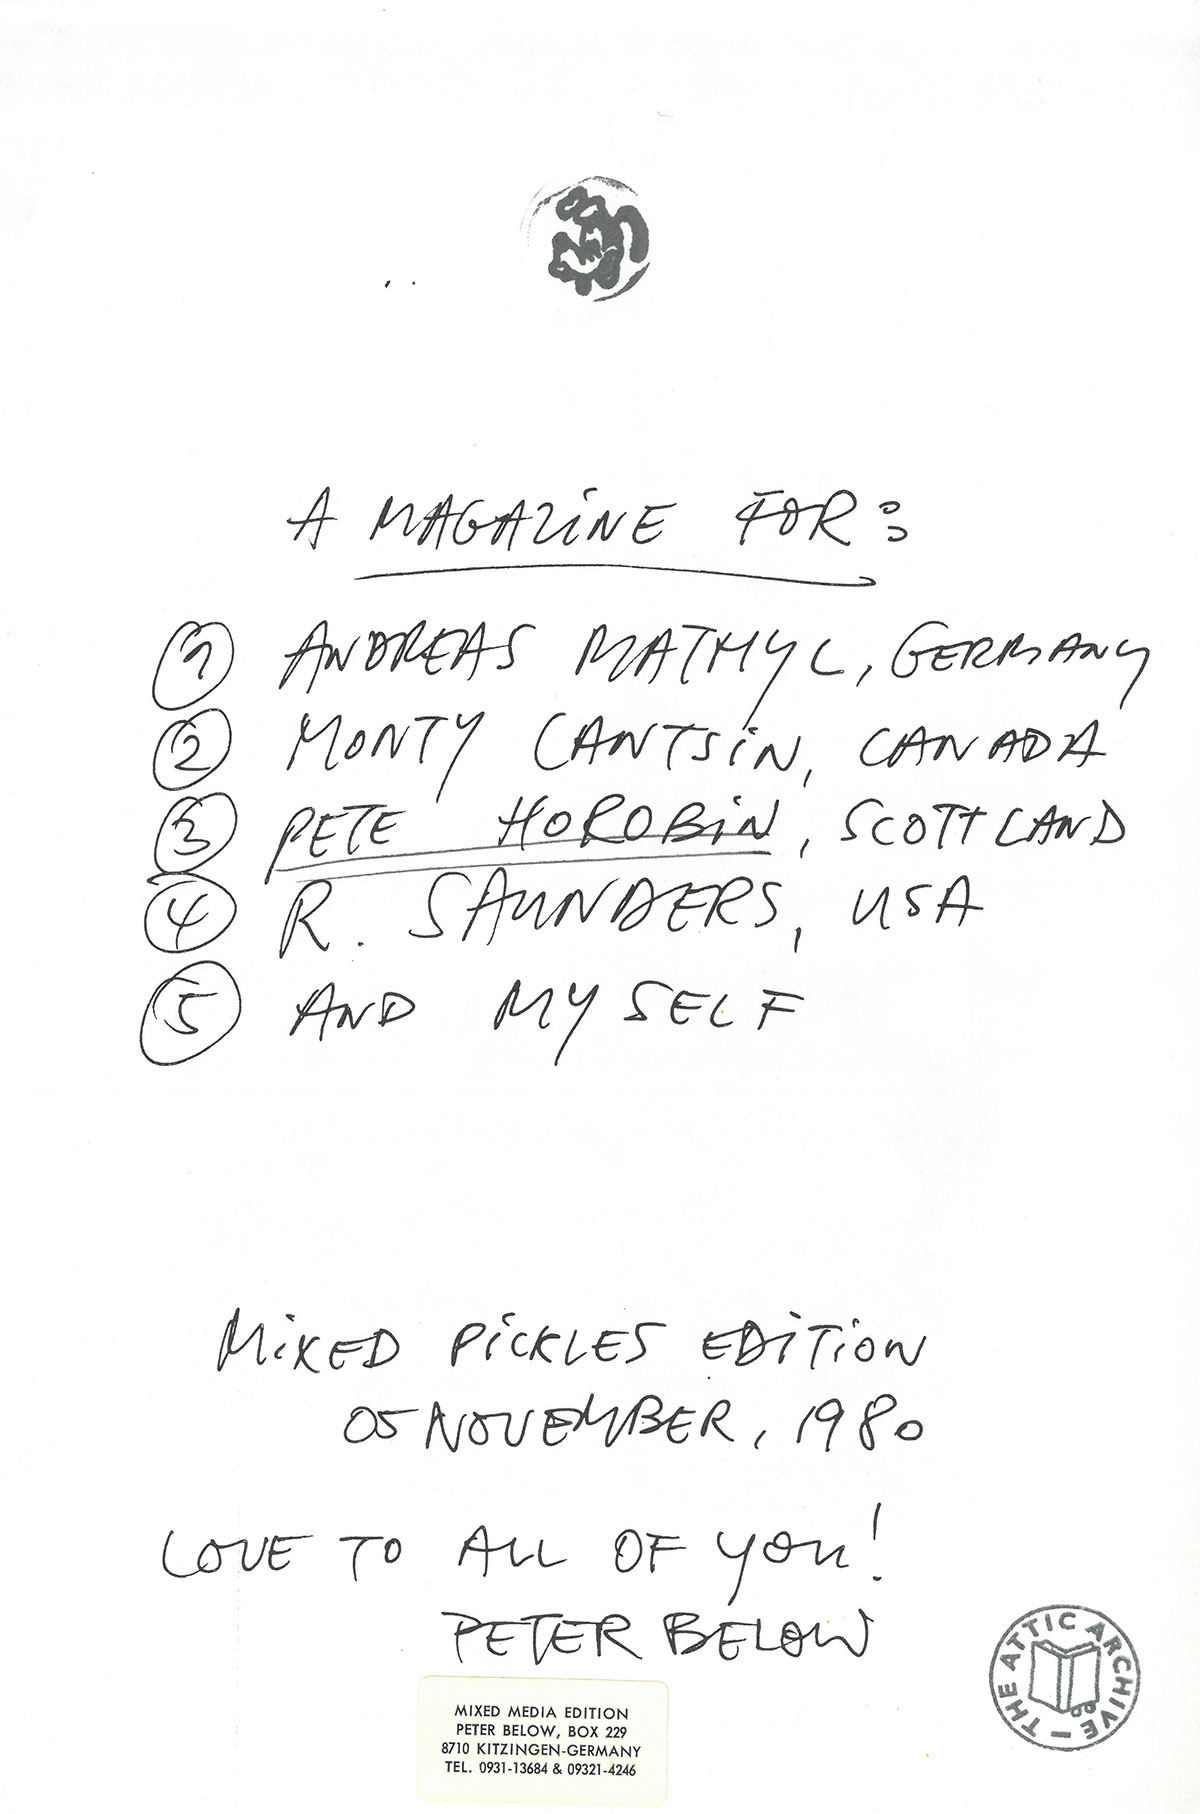 A MAGAZINE FOR:
1 ANDREAS MATHYL, GERMANY
2 MONTY CANTSIN, CANADA
3 PETE HOROBIN, SCOTTLAND
4 R. SAUNDERS, USA
5 AND MYSELF
MIXED PICKLES EDITION
05 NOVEMBER, 1980
LOVE TO ALL OF YOU!
PETER BELOW
MIXED MEDIA EDITION
PETER BELOW, BOX 229
8710 KITZINGEN-GERMANY
TEL. 0931-13684 & 09321-4246
THE ATTIC ARCHIVE –